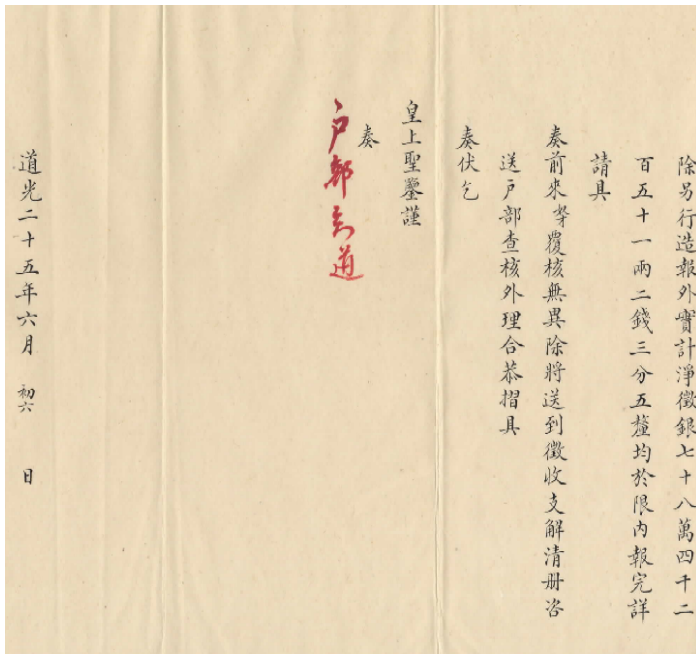 除另行造報外實計淨徵銀七十八萬四千二
百五十一兩二錢三分五釐均於限內報完詳
請具
奏前來等覆核無異除將送到徵收支解清册咨
送戶部查核外理合恭摺具
奏伏乞
皇上聖鑒謹
奏
戶部知道
道光二十五年六月 初六 日